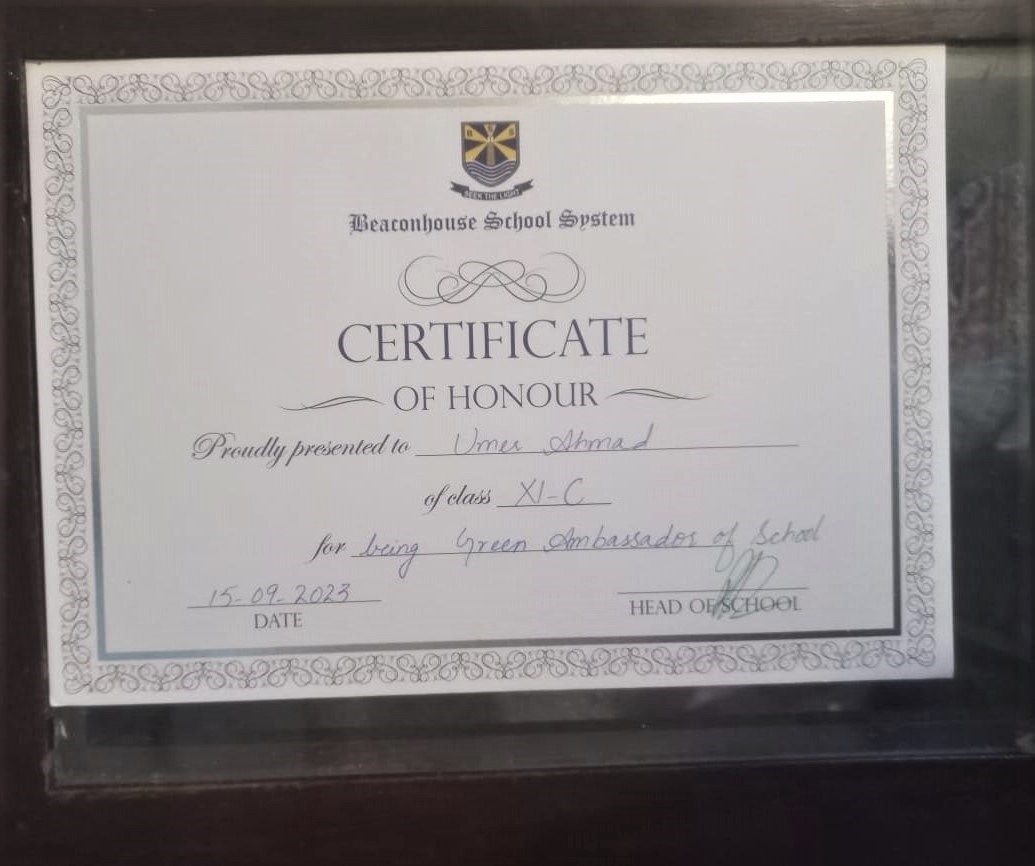 B S S
SEEK THE LIGHT
Beaconhouse School System
CERTIFICATE
OF HONOUR
Proudly presented to Umer Ahmad
of class XI-C
for being Green Ambassador of School
15-09-2023
DATE
HEAD OF SCHOOL